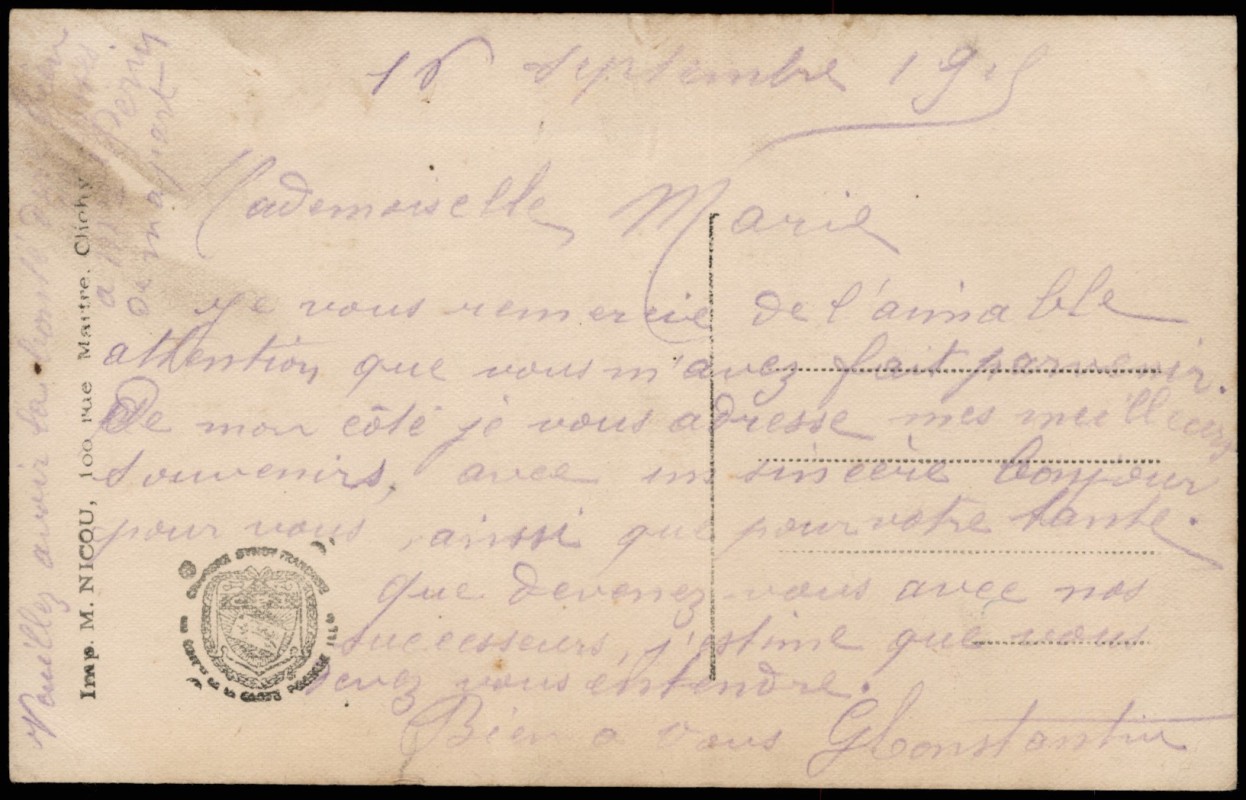 16 Septembre 1915
Mademoiselle Marie
Je vous remercie de l'aimable
attention que vous m'avez fait parvenir.
De mon côté je vous adresse mes meilleurs
souvenirs, avec un sincère bonjour
pour vous, ainsi que pour votre tante.
que devenez vous avec nos
successeurs, j'estime que vous
devez vous entendre.
Bien a vous GConstantin
Veuillez avoir la bonté de
a
de ma part
Imp. M. NICOU, 100 rue Martre. Clichy
CHAMBRE SYNDle FRANÇAISE
CARTE POSTALE ILLée